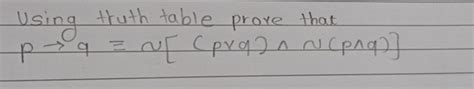 Using truth table prove that
p → q ≡ ~[ (p∨q) ∧ ~(p∧q)]